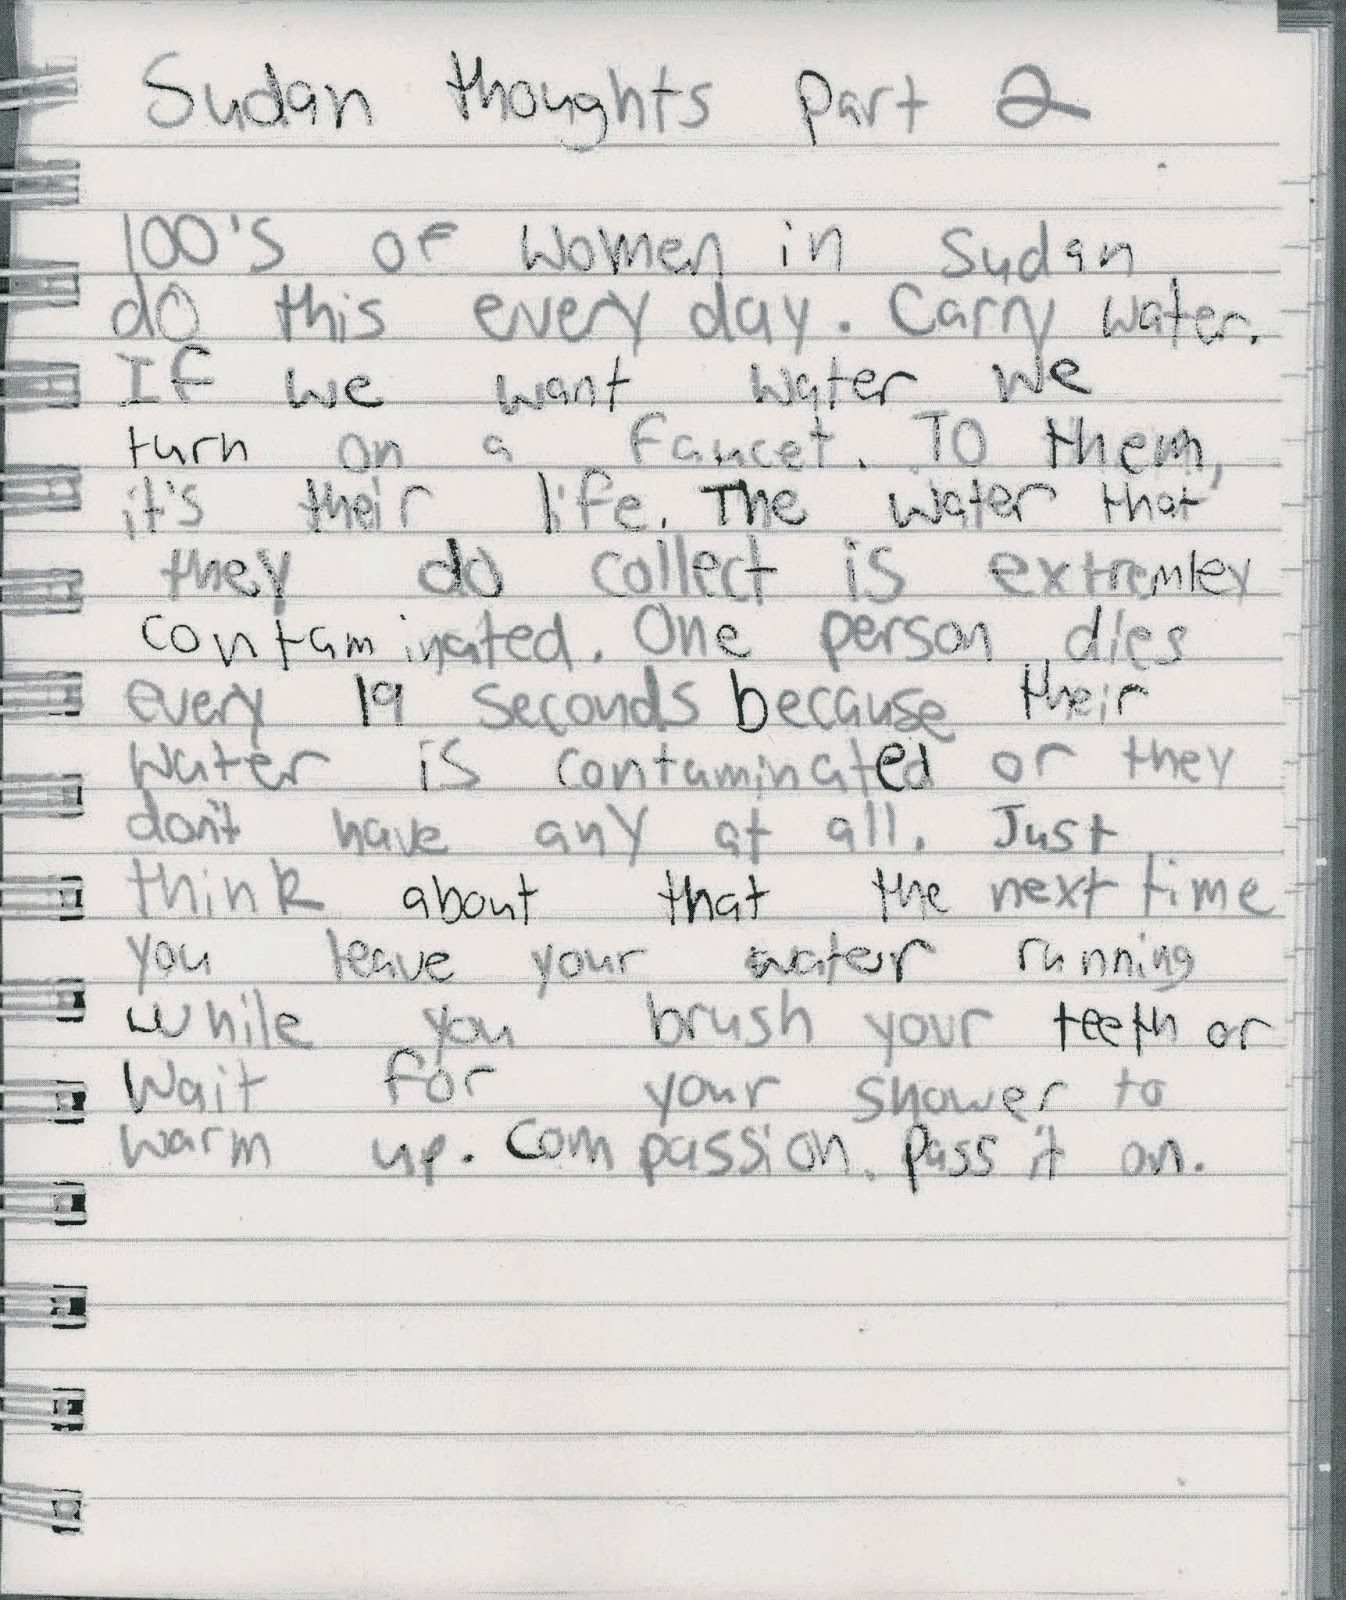 Sudan thoughts part 2
100's of women in Sudan
do this every day. Carry water.
If we want water we
turn on a faucet. To them,
it's their life. The water that
they do collect is extremley
contaminated. One person dies
every 19 seconds because their
water is contaminated or they
don't have any at all. Just
think about that the next time
you leave your water running
while you brush your teeth or
wait for your shower to
warm up. Compassion. Pass it on.